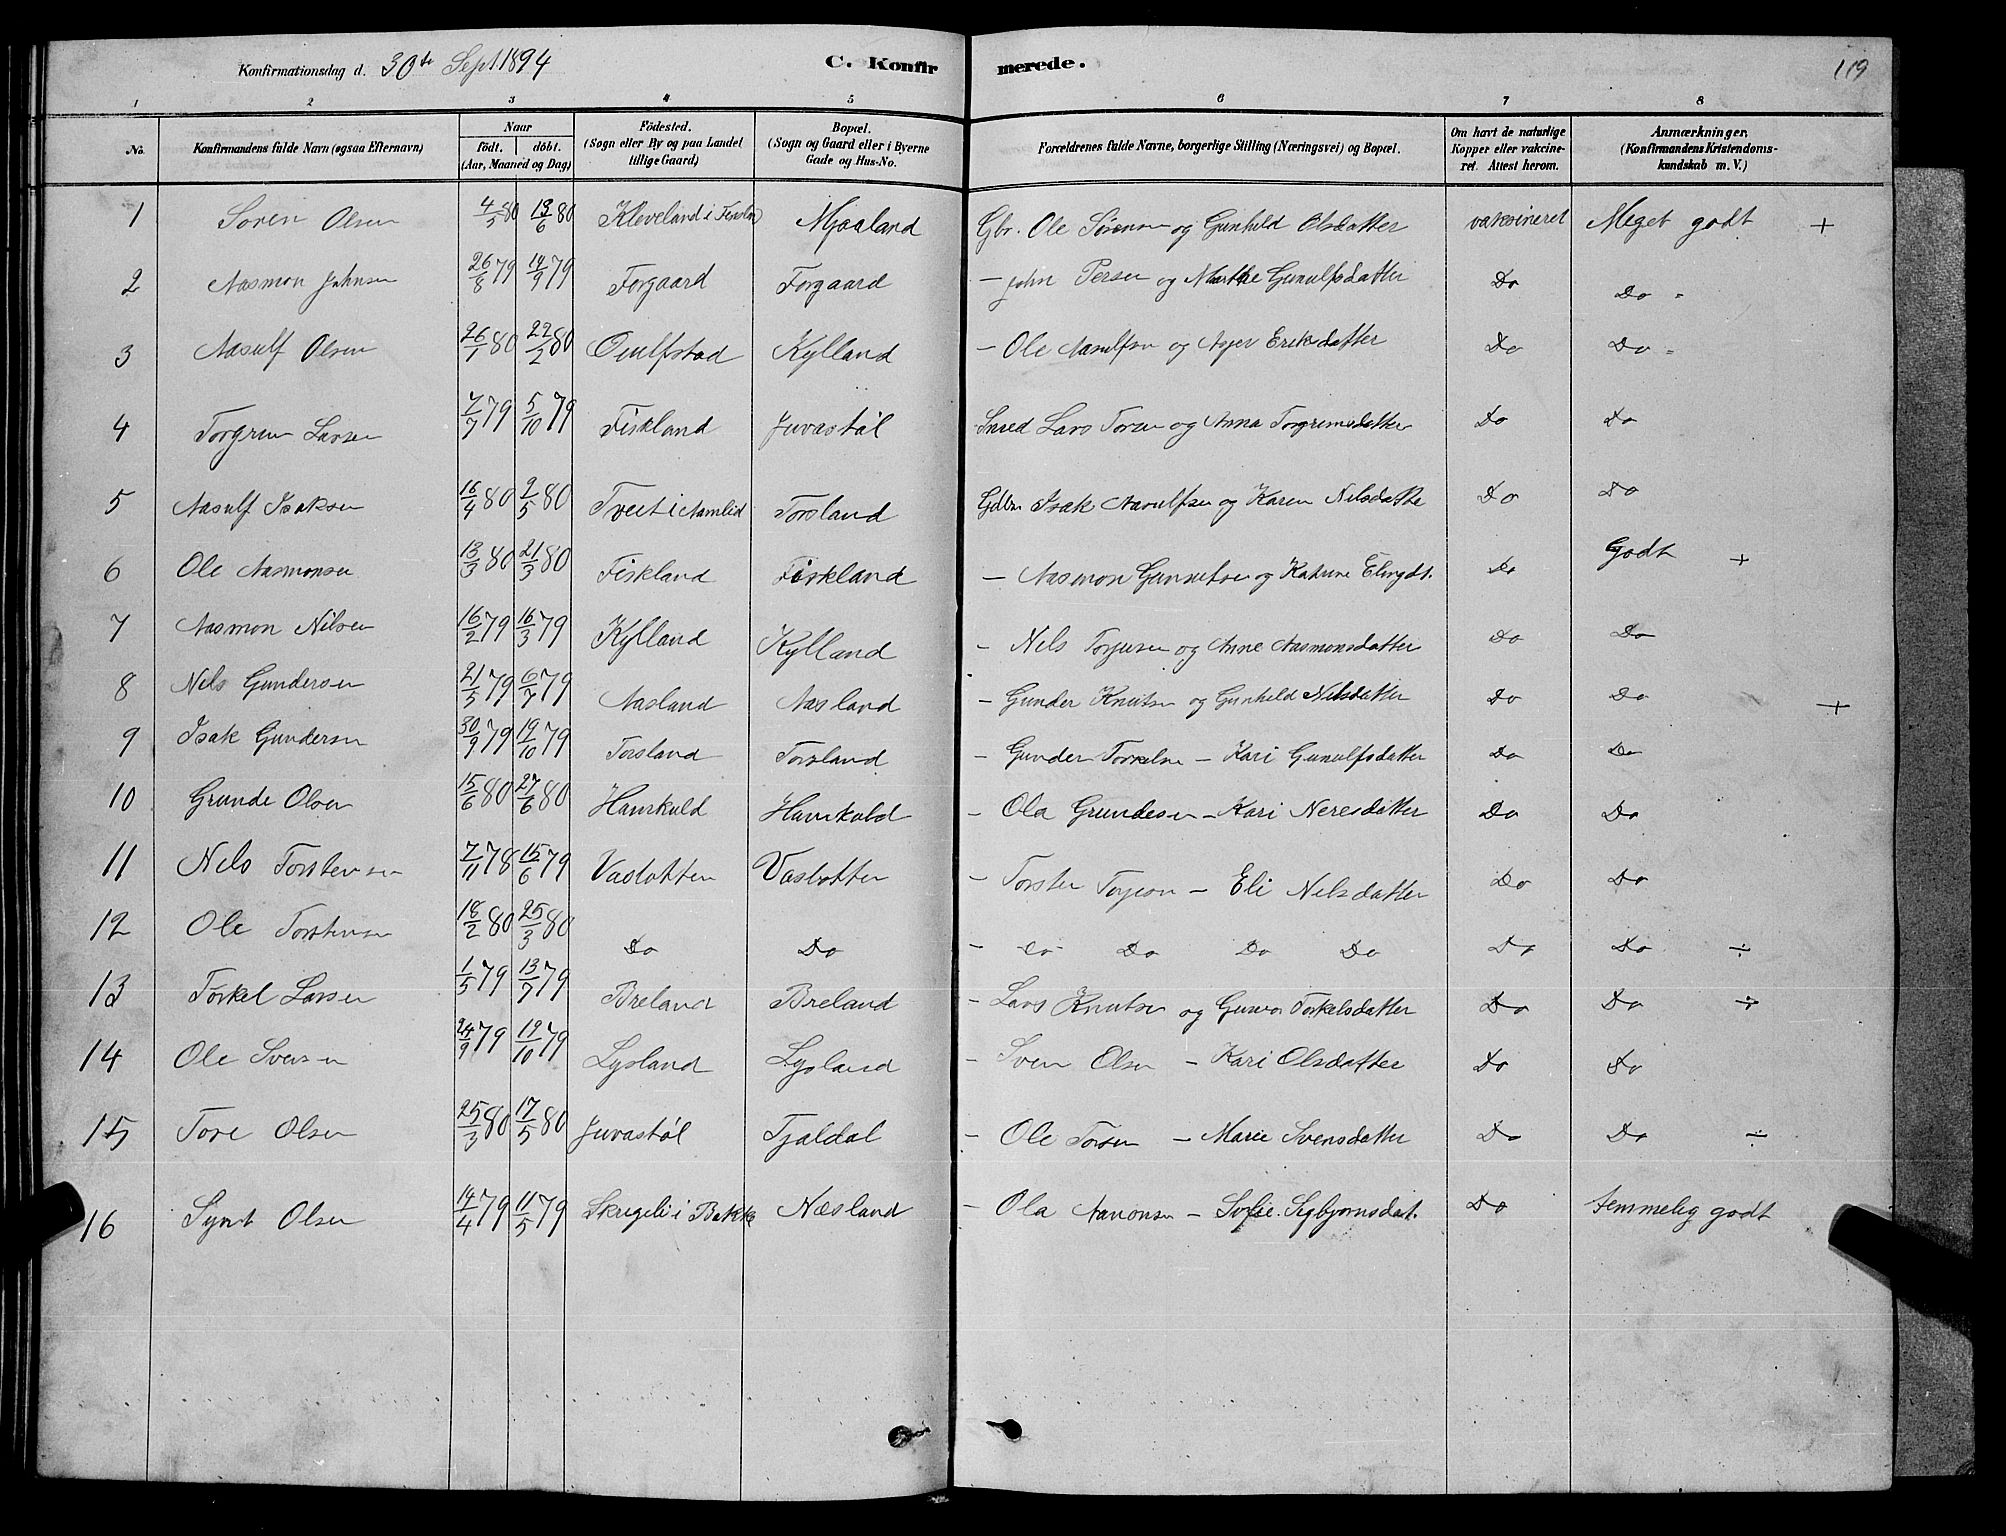 Konfirmationsdag d. 30te Sept. 1894 C. Konfirmerede. 119
1 2 3 4 5 6 7 8
No. Konfirmandens fulde Navn (ogsaa Efternavn) Naar födt. döbt. (Aar, Maaned og Dag) Födested. (Sogn eller By og paa Landet tillige Gaard) Bopæl. (Sogn og Gaard eller i Byerne Gade og Hus-No. Forældrenes fulde Navne, borgerlige Stilling (Næringsvei) og Bopæl. Om havt de naturlige Kopper eller vakcineret. Attest herom. Anmærkninger. (Konfirmandens Kristendomskundskab m. V.)
1 Soren Olsen 4/5 80 13/6 80 Kleveland i Mjaaland Gbr. Ole Sørensen og Gunhild Olsdatter vaksineret Meget godt +
2 Aasmon Johnsen 26/8 79 14/9 79 Forgaard Forgaard – John Persen og Marthe Gunulfsdatter Do Do
3 Aasulf Olsen 26/1 80 22/2 80 Oulfstad Kylland – Ole Aasulfsen og Asjer Eriksdatter Do Do
4 Torgrim Larsen 7/7 79 5/10 79 Fiskland Juvastøl Lars Torsen og Anna Torgrimsdatter Do Do
5 Aasulf Isaksen 16/4 80 2/5 80 Tveit i Aamlid Torsland Isak Aasulfsen og Karen Nilsdatte Do Do
6 Ole Aasmonsen 13/3 80 21/3 80 Fiskland Fiskland – Aasmon og Katrine Do Godt +
7 Aasmon Nilsen 16/2 79 16/3 79 Kylland Kylland – Nels Torjusen og Anne Aasmonsdatter Do Do
8 Nels Gundersen 21/5 79 6/7 79 Aasland Aasland – Gunder Knutsen og Gunhild Nilsdatter Do Do +
9 Isak Gundersen 30/9 79 19/10 79 Torsland Torsland – Gunder Torkelsen – Kari Gunulfsdatter Do Do
10 Grunde Olsen 15/6 80 27/6 80 Hauskuld Hauskuld – Ola Grundesen – Kari Neresdatter Do Do
11 Nels Torstensen 7/11 78 15/6 79 Vaslotten Vaslotten – Torsten Torjesen – Eli Nelsdatter Do Do
12 Ole Torstensen 18/2 80 25/3 80 Do Do – Do Do Do Do Do Do ÷
13 Torkel Larsen 1/5 79 13/7 79 Breland Breland – Lars Knutsen og Gunvor Torkelsdatter Do Do ÷
14 Ole Svensen 24/9 79 19/10 79 Lysland Lysland – Sven Olsen – Kari Olsdatter Do Do
15 Tore Olsen 25/3 80 17/5 80 Juvastøl Tjaldal – Ole Torsen – Marie Svensdatter Do Do ÷
16 Synt Olsen 14/4 79 11/5 79 Skregeli i Bakke Næsland – Ola Aanonsen – Sofie Sigbjornsdat. Do temmelig godt